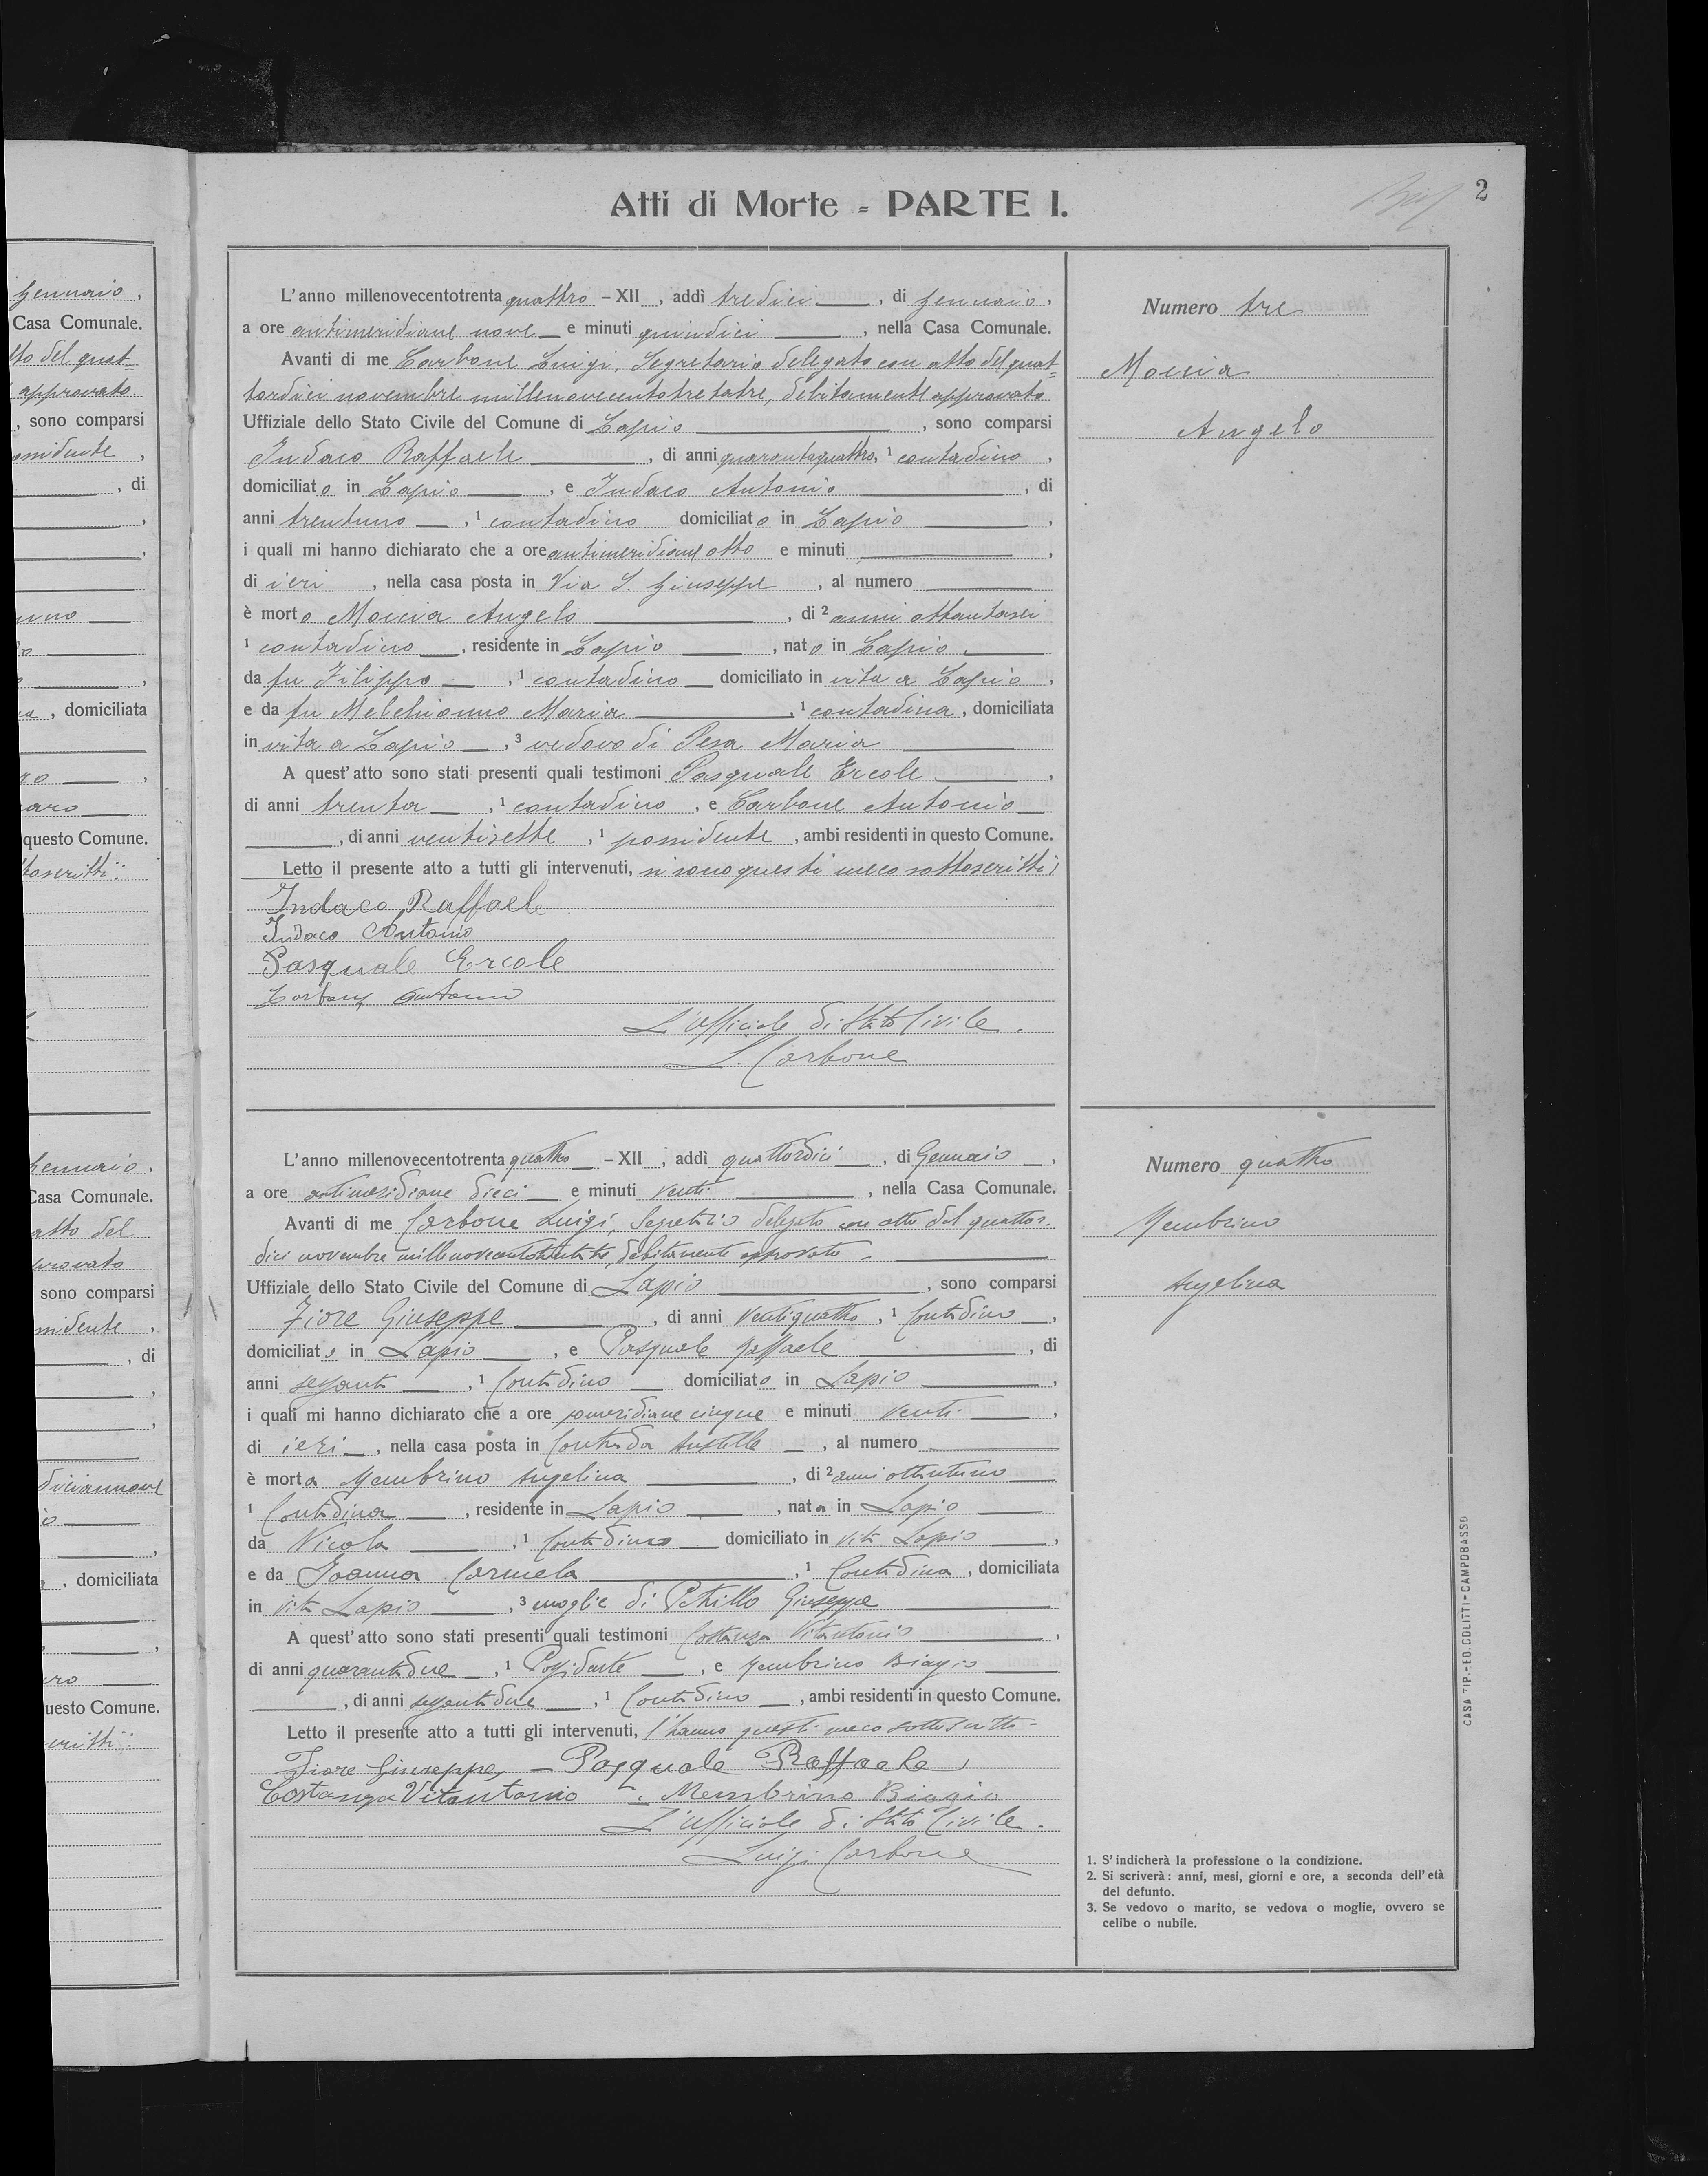 2
Atti di Morte - PARTE I.
L'anno millenovecentotrenta quattro - XII, addì tredici, di gennaio,
a ore antimeridiane nove e minuti quindici, nella Casa Comunale.
Avanti di me Carbone Luigi, Segretario delegato con atto del quat=
tordici novembre millenovecentotretatre, debitamente approvato
Uffiziale dello Stato Civile del Comune di Lapio, sono comparsi
Indaco Raffaele, di anni quarantaquattro, 1 contadino,
domiciliato in Lapio, e Indaco Antonio, di
anni trentuno, 1 contadino domiciliato in Lapio,
i quali mi hanno dichiarato che a ore antimeridiane otto e minuti,
di ieri, nella casa posta in Via S. Giuseppe, al numero
è morto Moccia Angelo, di 2 anni ottantasei
1 contadino, residente in Lapio, nato in Lapio,
da fu Filippo, 1 contadino domiciliato in vita a Lapio,
e da fu Melchionno Maria, 1 contadina, domiciliata
in vita a Lapio, 3 vedovo di Pesa Maria
A quest'atto sono stati presenti quali testimoni Pasquale Ercole,
di anni trenta, 1 contadino, e Carbone Antonio
, di anni ventisette, 1 possidente, ambi residenti in questo Comune.
Letto il presente atto a tutti gli intervenuti, si sono questi meco sottoscritti;
Indaco Raffaele
Indaco Antonio
Pasquale Ercole
Carbone Antonio
L'Ufficiale di Stato Civile.
L. Carbone
Numero tre
Moccia
Angelo
L'anno millenovecentotrenta quattro - XII, addì quattordici, di Gennaio,
a ore antimeridiane dieci e minuti venti, nella Casa Comunale.
Avanti di me Carbone Luigi, Segretario delegato con atto del quattor-
dici novembre millenovecentotrentatre, debitamente approvato.
Uffiziale dello Stato Civile del Comune di Lapio, sono comparsi
Fiore Giuseppe, di anni ventiquattro, 1 Contadino,
domiciliato in Lapio, e Pasquale Raffaele, di
anni sessanta, 1 Contadino domiciliato in Lapio,
i quali mi hanno dichiarato che a ore pomeridiane cinque e minuti venti,
di ieri, nella casa posta in Contrada, al numero
è morta Membrino Angelina, di 2 anni ottantuno
1 Contadina, residente in Lapio, nata in Lapio
da Nicola, 1 Contadino domiciliato in vita Lapio,
e da Joanna Carmela, 1 Contadina, domiciliata
in vita Lapio, 3 moglie di Petrillo Giuseppe
A quest'atto sono stati presenti quali testimoni Costanza Vitantonio,
di anni quarantadue, 1 Possidente, e Membrino Biagio
, di anni sessantadue, 1 Contadino, ambi residenti in questo Comune.
Letto il presente atto a tutti gli intervenuti, l'hanno questi meco sottoscritto-
Fiore Giuseppe - Pasquale Raffaele
Costanza Vitantonio - Membrino Biagio
L'Ufficiale di Stato Civile.
Luigi Carbone
Numero quattro
Membrino
Angelina
1. S'indicherà la professione o la condizione.
2. Si scriverà: anni, mesi, giorni e ore, a seconda dell'età
del defunto.
3. Se vedovo o marito, se vedova o moglie, ovvero se
celibe o nubile.
CASA TIP.-ED. COLITTI-CAMPOBASSO